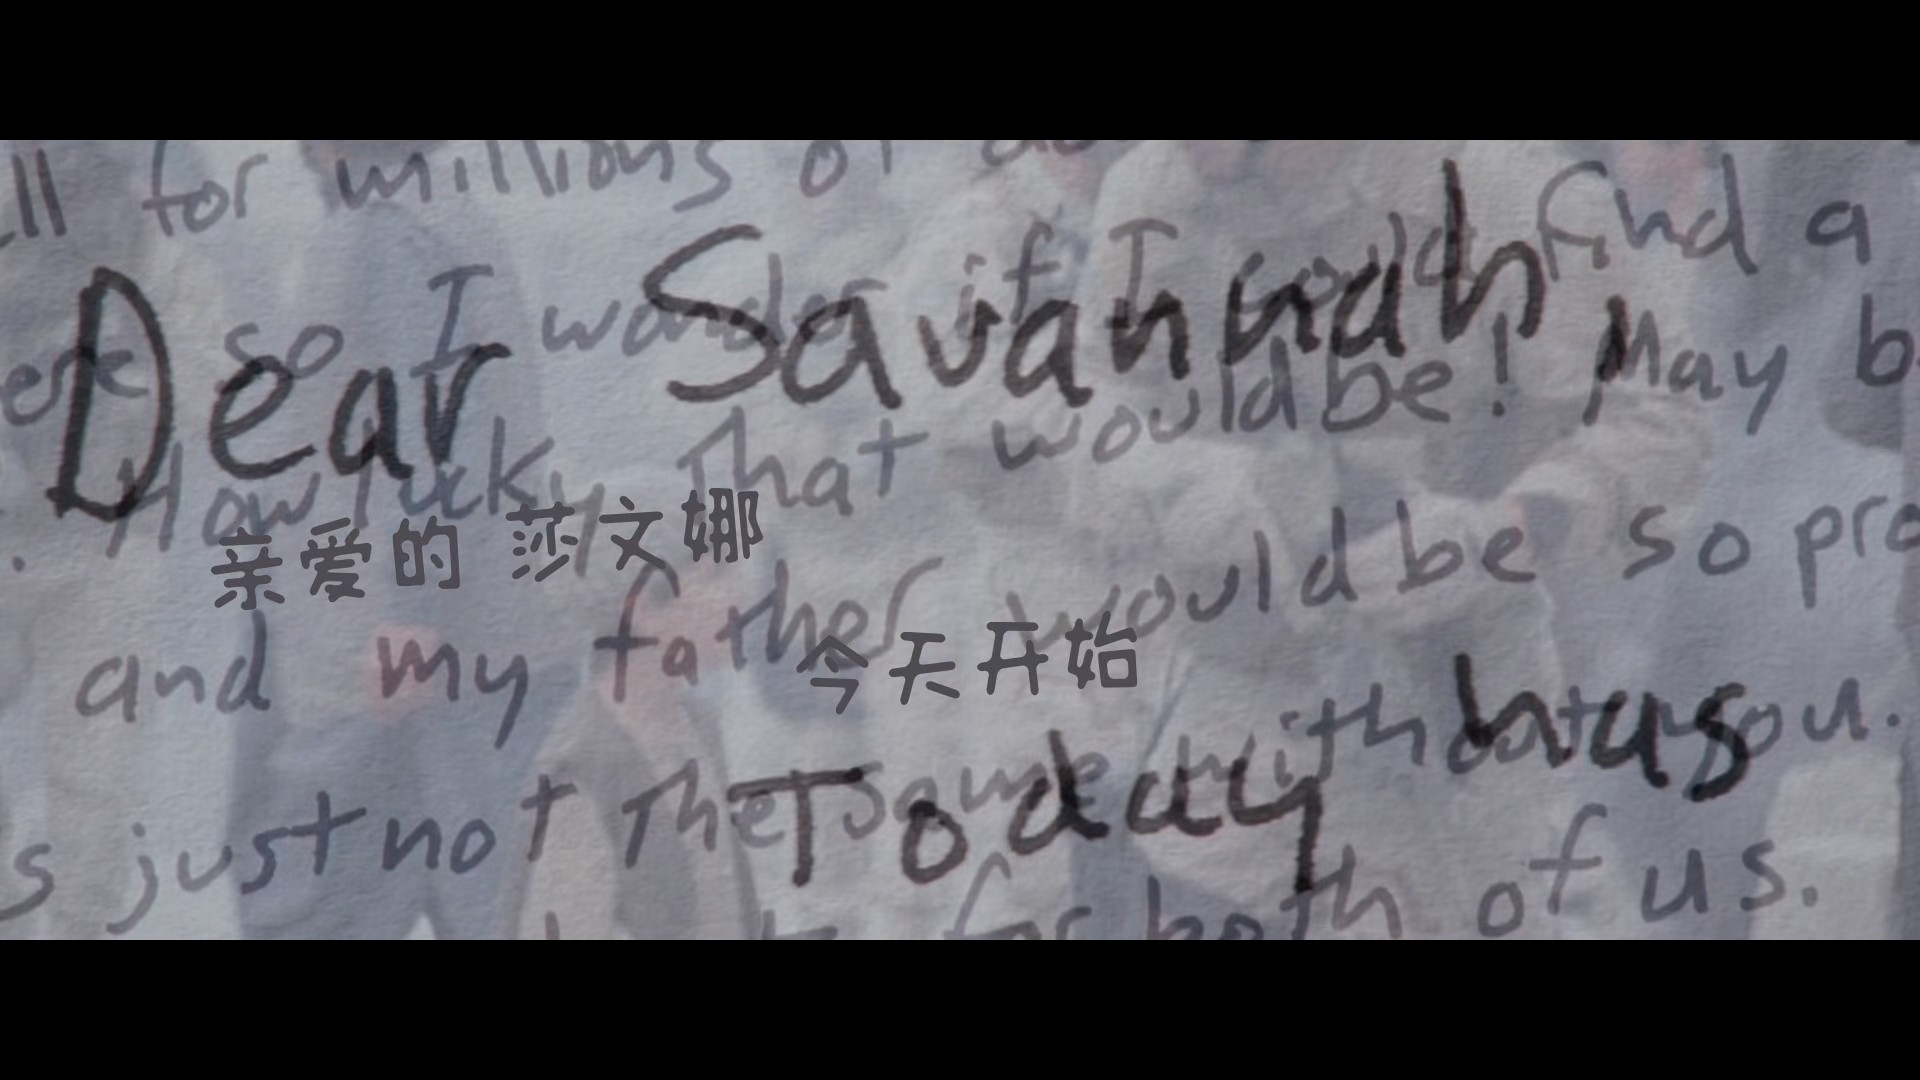 ll for millions of
Dear Savannah,
so I wonder if I could find a
How lucky that would be! May b
亲爱的 莎文娜
and my father would be so pro
今天开始
Today has
s just not the same without you.
for both of us.